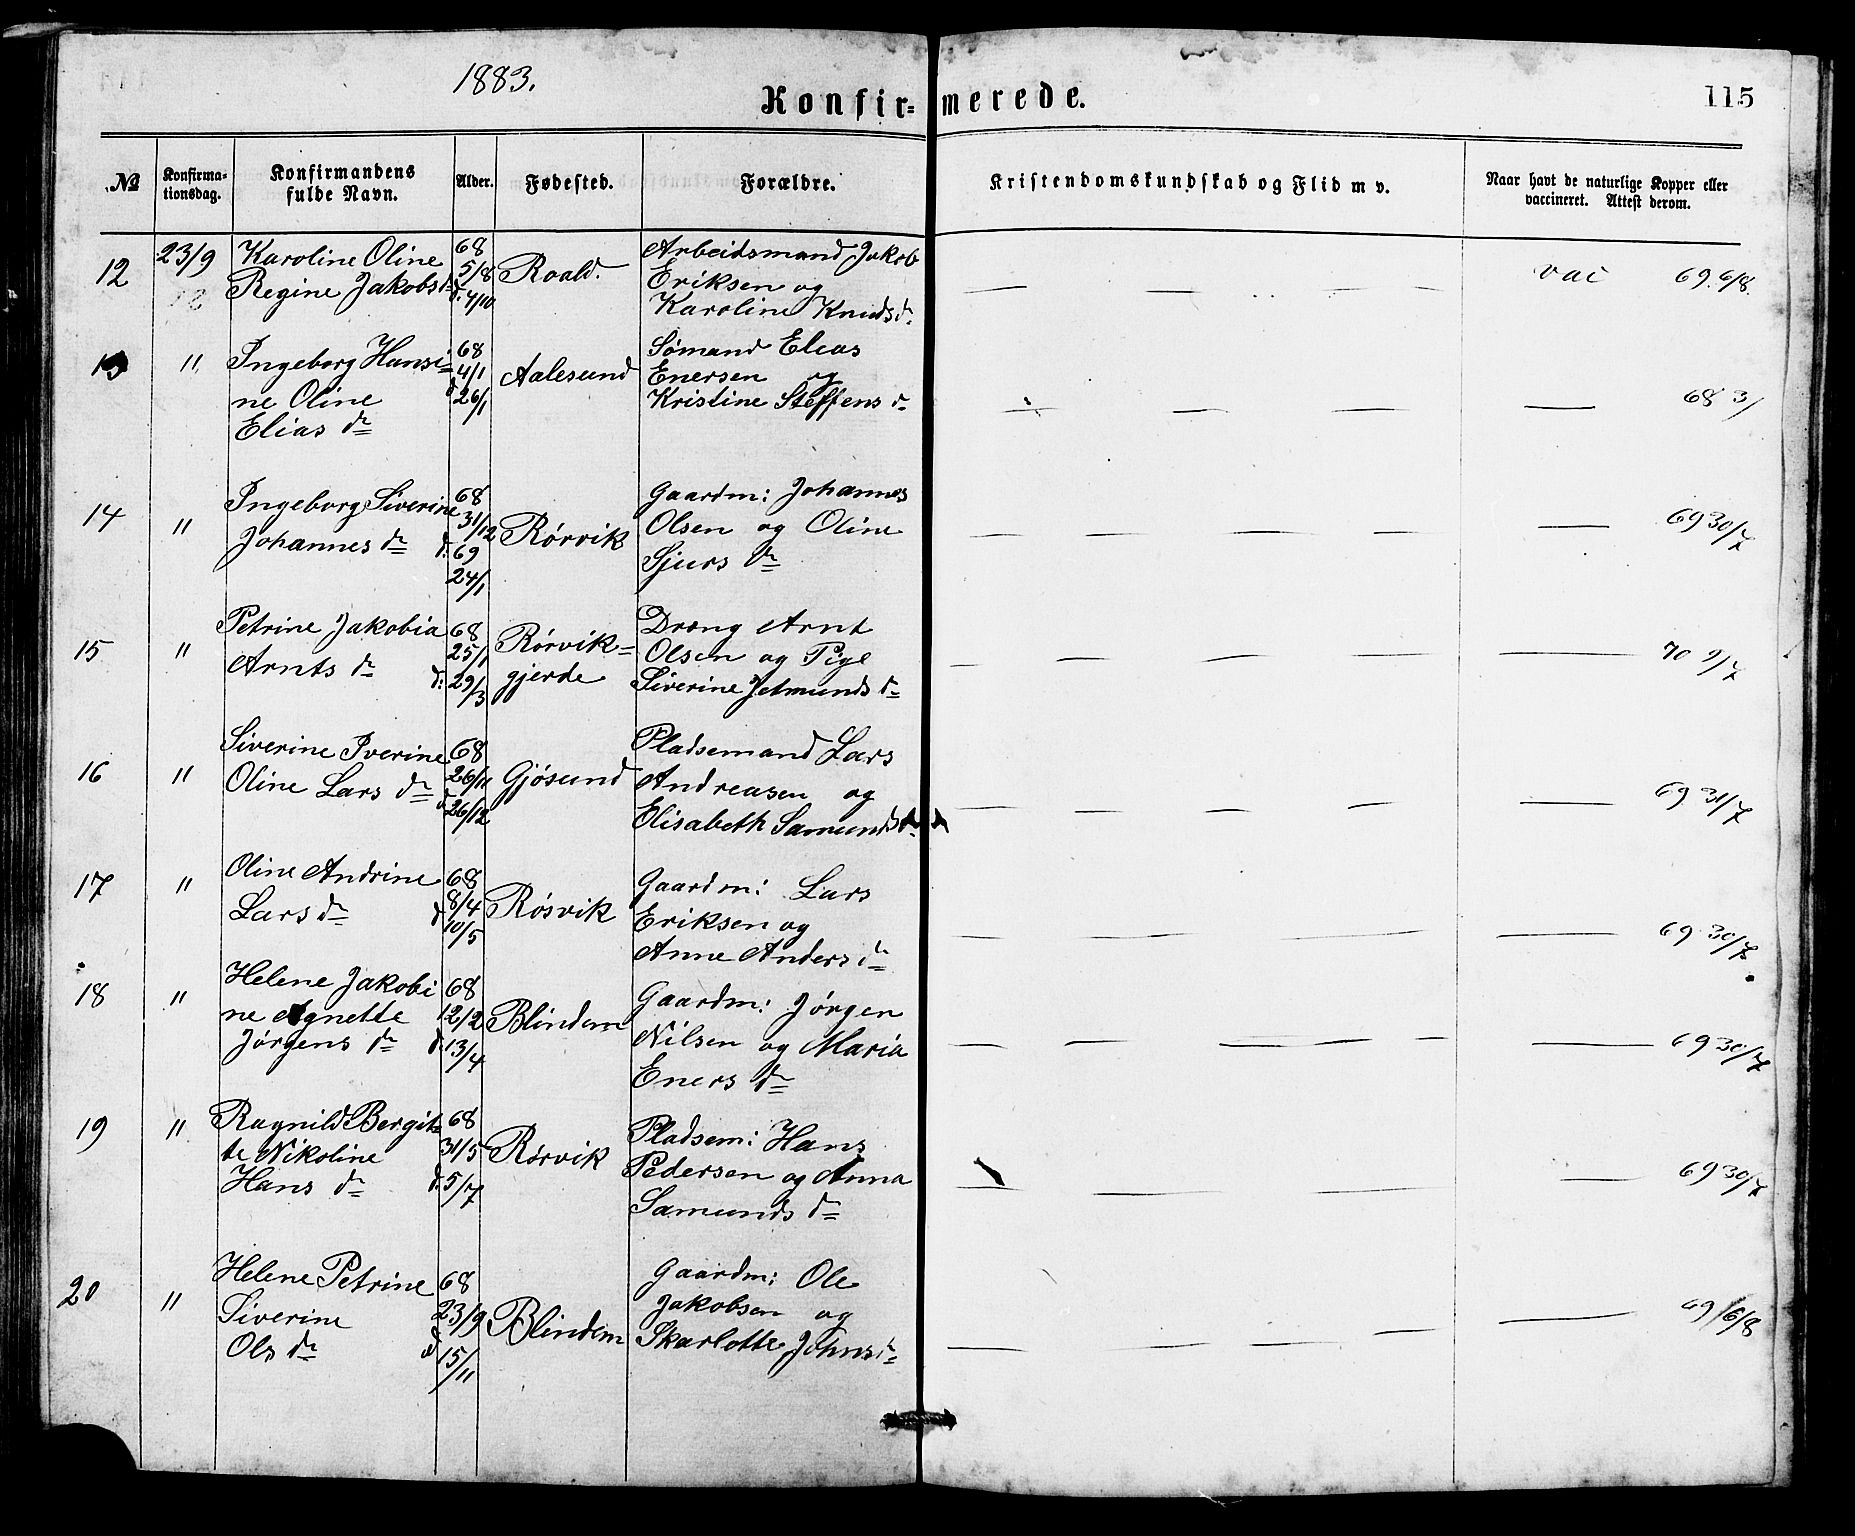 1883.
Konfirmerede.
115
№
Konfirmationsdag.
Konfirmandens fulde Navn.
Alder.
Fødested.
Forældre.
Kristendomskundskab og Flid m v.
Naar havt de naturlige Kopper eller vaccineret. Attest derom.
12 23/9 Karoline Oline 68 Roald. Arbeidsmand Jakob — — — — vac 69. 6/8.
Regine Jakobsdr 5/8 Eriksen og
d. 4/10 Karoline Knudsdr
13 " Ingeborg Hansi= 68 Aalesund Sømand Elias — — — — 68 3/
ne Oline 4/1 Enersen og
Elias dr d 26/1 Kristine Steffens dr
14 " Ingeborg Siverine 68 Rørvik Gaardm: Johannes — — — — — 69 30/7
Johannes dr 31/12 Olsen og Oline
d. 69 Sjurs dr
24/1
15 " Petrine Jakobia 68 Rørvik= Dreng Arnt — — — — — 70 9/7
Arnts dr 25/1 gjerde Olsen og Pige
d: 29/3 Siverine Jetmunds dr
16 " Siverine Iverine 68 Gjøsund Pladsemand Lars — — — — — 69 31/7
Oline Lars dr 26/11 Andreasen og
d 26/12 Elisabeth Samunds dr
17 " Oline Andrine 68 Røsvik Gaardm: Lars — — — — 69 30/7
Lars dr 8/4 Eriksen og
d 10/5 Anne Anders dr
18 " Helene Jakobi 68 Blindem Gaardm: Jørgen — — — — — 69 30/7
ne Agnette 12/2 Nilsen og Maria
Jørgens dr d. 13/4 Eners dr
19 " Ragnild Bergit= 68 Rørvik Pladsem: Hans — — — — 69 30/7
te Nikoline 31/5 Pedersen og Anna
Hans dr d. 5/7 Samunds dr
20 " Helene Petrine 68 Blindem Gaardm: Ole — — — — 69 6/8
Siverine 23/9 Jakobsen og
Ols dr d 15/11 Skarlotte Johns dr